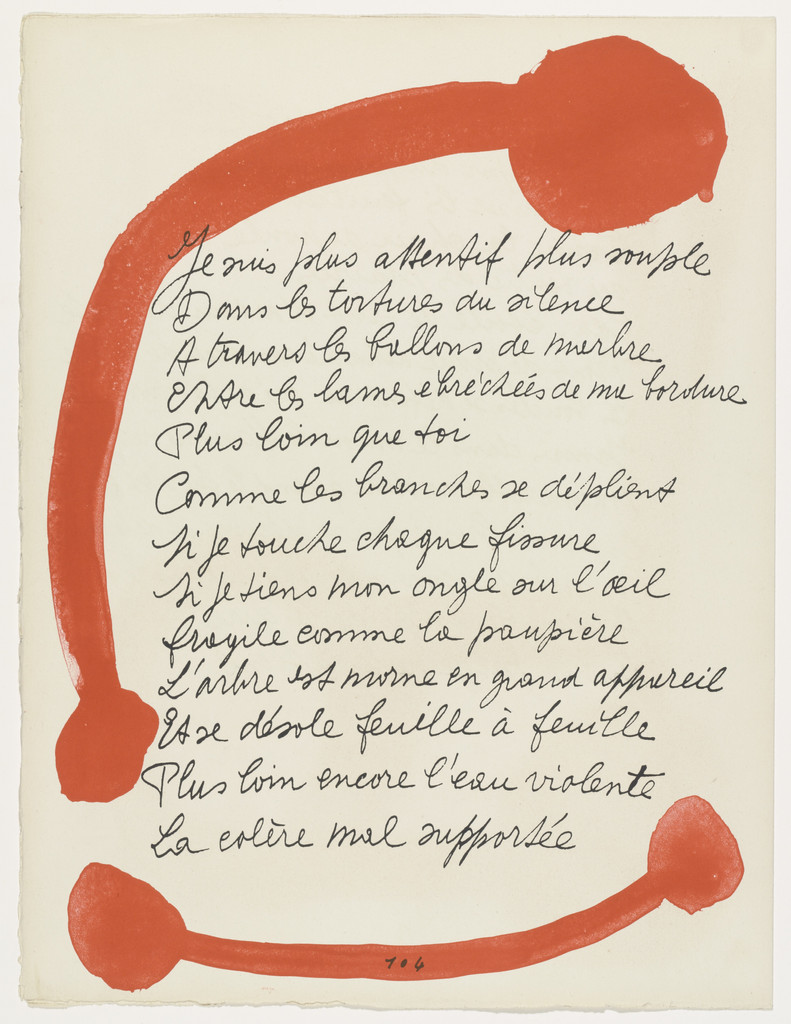 Je suis plus attentif plus souple
Dans les tortures du silence
A travers les ballons de marbre
Entre les lames ébréchées de ma bordure
Plus loin que toi
Comme les branches se déplient
Si je touche chaque fissure
Si je tiens mon ongle sur l'œil
fragile comme la paupière
L'arbre est morne en grand appareil
Et se désole feuille à feuille
Plus loin encore l'eau violente
La colère mal supportée
104